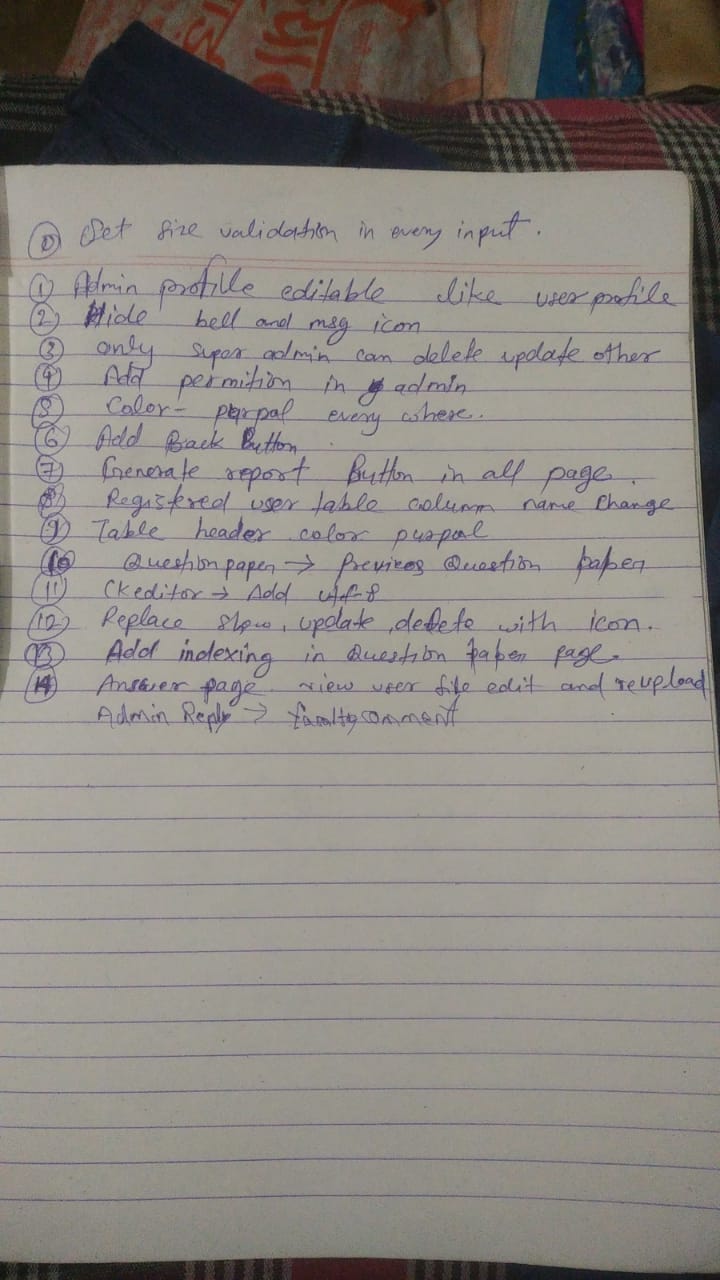 0 Set size validation in every input.
1 Admin profille editable like user profile
2 Hide bell and msg icon
3 only super admin can delete update other
4 Add permition in admin
5 Color - purpal every where.
6 Add Back Button
7 Generate report Button in all page.
8 Registered user table column name change
9 Table header color purpal
10 Question paper → Previces Question paper
11 CKeditor → Add utf-8
12 Replace show, update, delete with icon.
13 Add indexing in Question paper page.
14 Answer page view user file edit and reupload
Admin Reply → faculty comment